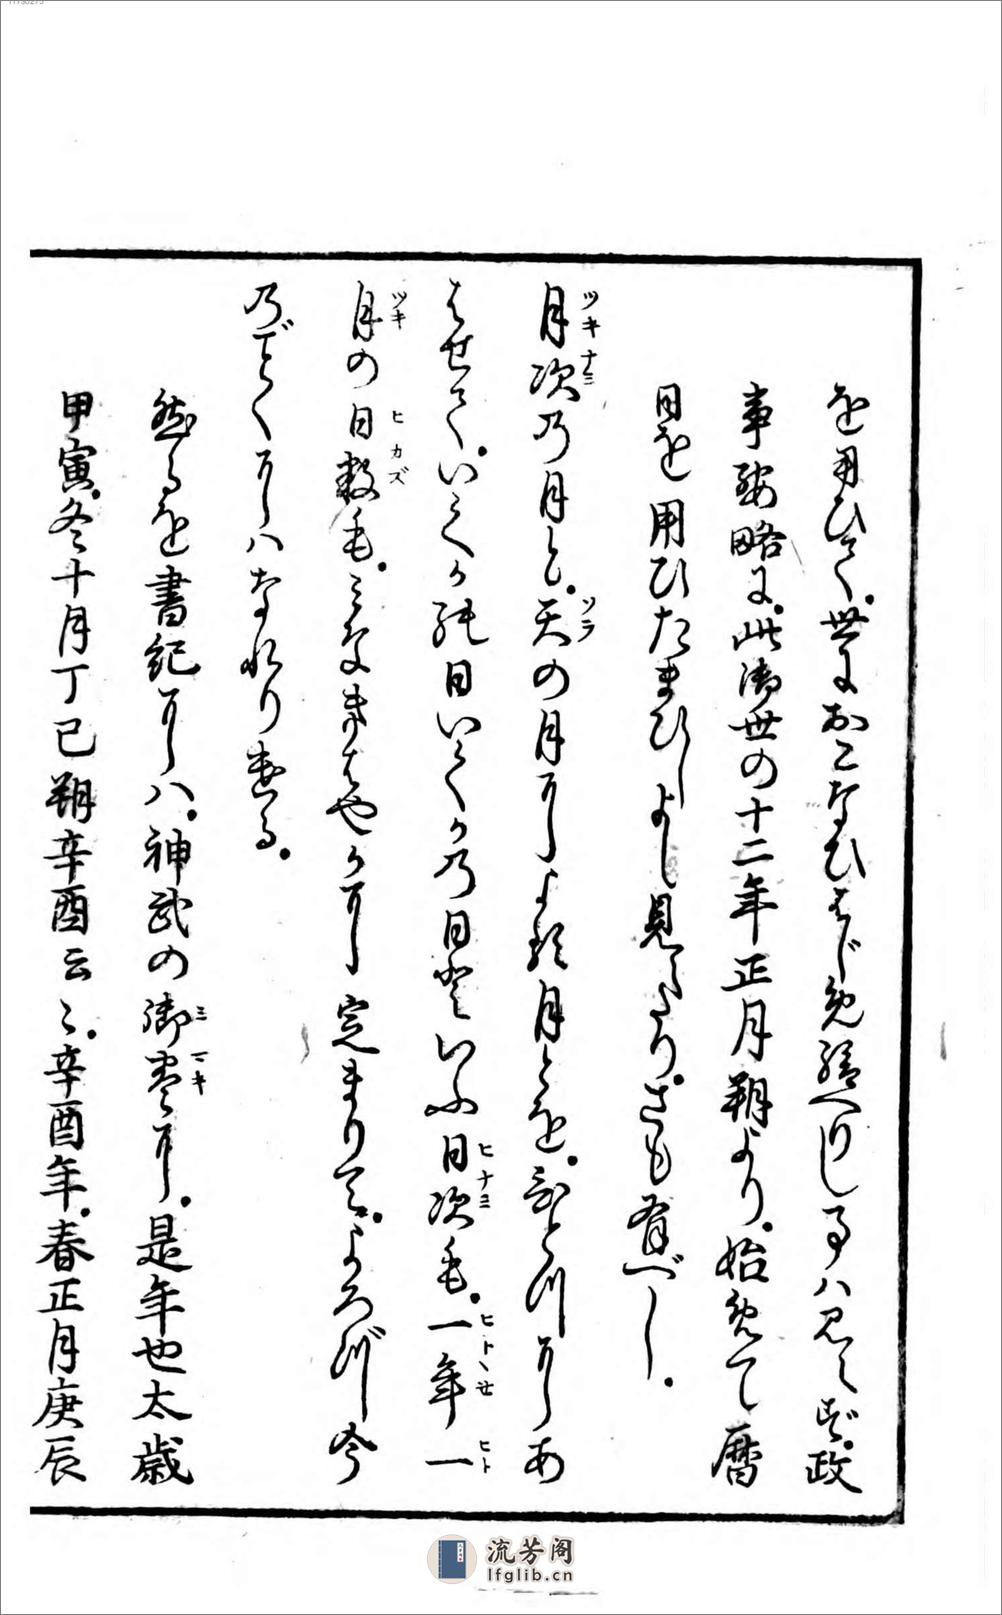 を用ひて、世におこなひはじめ給へりしる事ハ見えず、政
事要略に、此御世の十二年正月朔より、始めて暦
日を用ひたまひしよし見えたり、さも有べし、
月次の月と、天の月によれる月とを、ひとつにあ
はせて、いくかの日いくかの日といふ日次も、一年一
月の日数も、みなきはやかに定まりて、よろづ今
のごとくにハなれりける、
然るを書紀にハ、神武の御巻に、是年也太歳
甲寅、冬十月丁巳朔辛酉云々、辛酉年、春正月庚辰
流芳阁
lfglib.cn